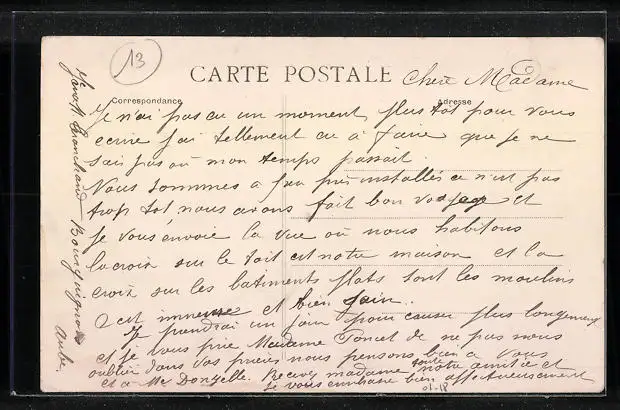 13
CARTE POSTALE
Chere Madame
Correspondance
Adresse
Je n'ai pas eu un moment plus tot pour vous
ecrire j'ai tellement eu a faire que je ne
sais pas où mon temps passait
Nous sommes a peu près installés ce n'est pas
trop tot, nous avons fait bon voyage et
je vous envoie la vue où nous habitons
la croix sur le toit est notre maison et la
croix sur les batiments plats sont les moulins
c'est immense et bien loin.
Je prendrai un jour pour causer plus longement
et je vous prie Madame Poncet de ne pas nous
oublier dans vos prières nous pensons bien a vous
et a Me Donzelle. Recevez madame toute notre amitié et
je vous embrasse bien affectueusement
Bourguignons
Aube